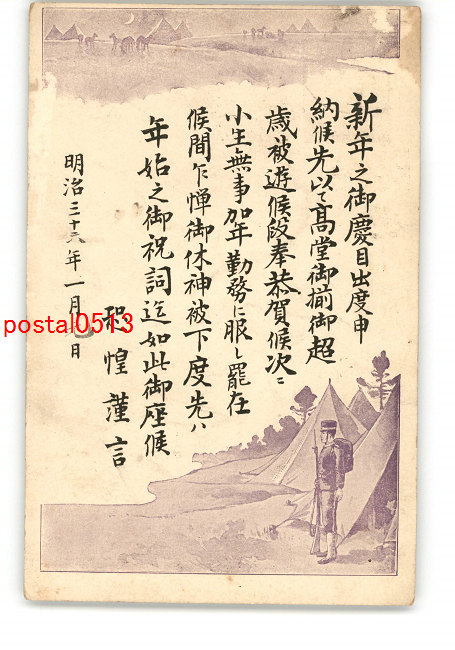 新年之御慶目出度申
納候先以て高堂御揃御超
歳被遊候段奉恭賀候次ニ
小生無事加年勤務に服し罷在
候間乍憚御休神被下度先ハ
年始之御祝詞迄如此御座候
惶謹言
明治三十六年一月 日
postal0513